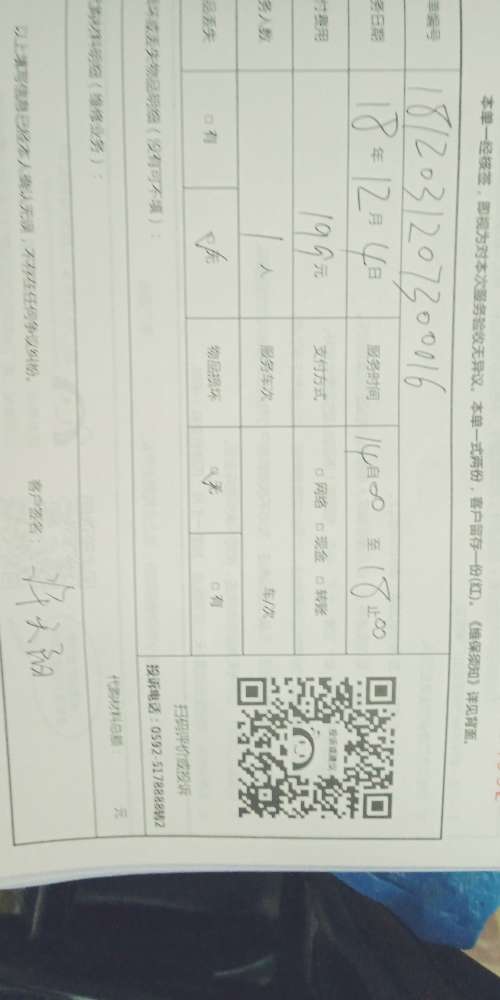 本单一经核签，即视为对本次服务验收无异议。本单一式两份，客户留存一份(红)。《维保须知》详见背面。
单编号 181203120730016
务日期 18年12月4日 服务时间 14自00至18止00
付费用 199元 支付方式 □网络 □现金 □转账
务人数 1人 服务车次 车/次
品丢失 □有 无 物品损坏 无 □有
坏或丢失物品明细（没有可不填）：
投诉或建议
扫码评价或投诉
投诉电话：0592-5178888转2
材料明细（维修业务）：
代购材料总额： 元
以上填写信息已经本人确认无误，不存在任何争议纠纷。
客户签名：